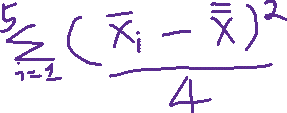 $\sum_{i=1}^{5} \frac{(\bar{x}_i - \bar{\bar{x}})^2}{4}$